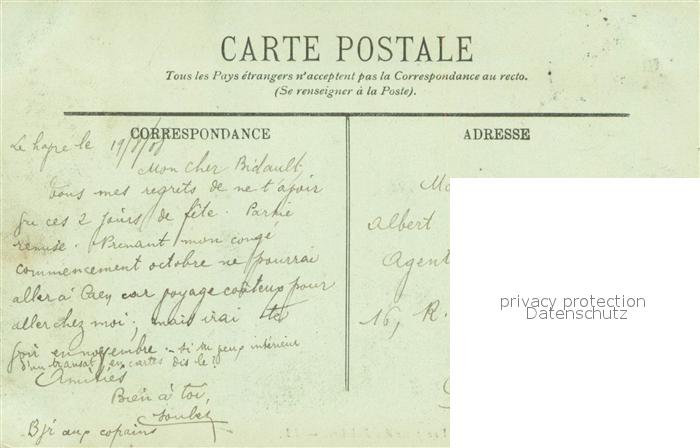 CARTE POSTALE
Tous les Pays étrangers n'acceptent pas la Correspondance au recto.
(Se renseigner à la Poste).
CORRESPONDANCE
Le havre le 19/8/08
Mon cher Bidault,
Tous mes regrets de ne t'avoir
pu ces 2 jours de fête. Partie
remise. Prenant mon congé
commencement octobre ne pourrai
aller à Caen car voyage coûteux pour
aller chez moi; mais irai te
voir en novembre. - si tu peux intérieur
d'un transat, en cartes dis le?
Amitiés
Bien à toi,
Bjr aux copains
ADRESSE
Albert
Agent
16, R.
privacy protection
Datenschutz